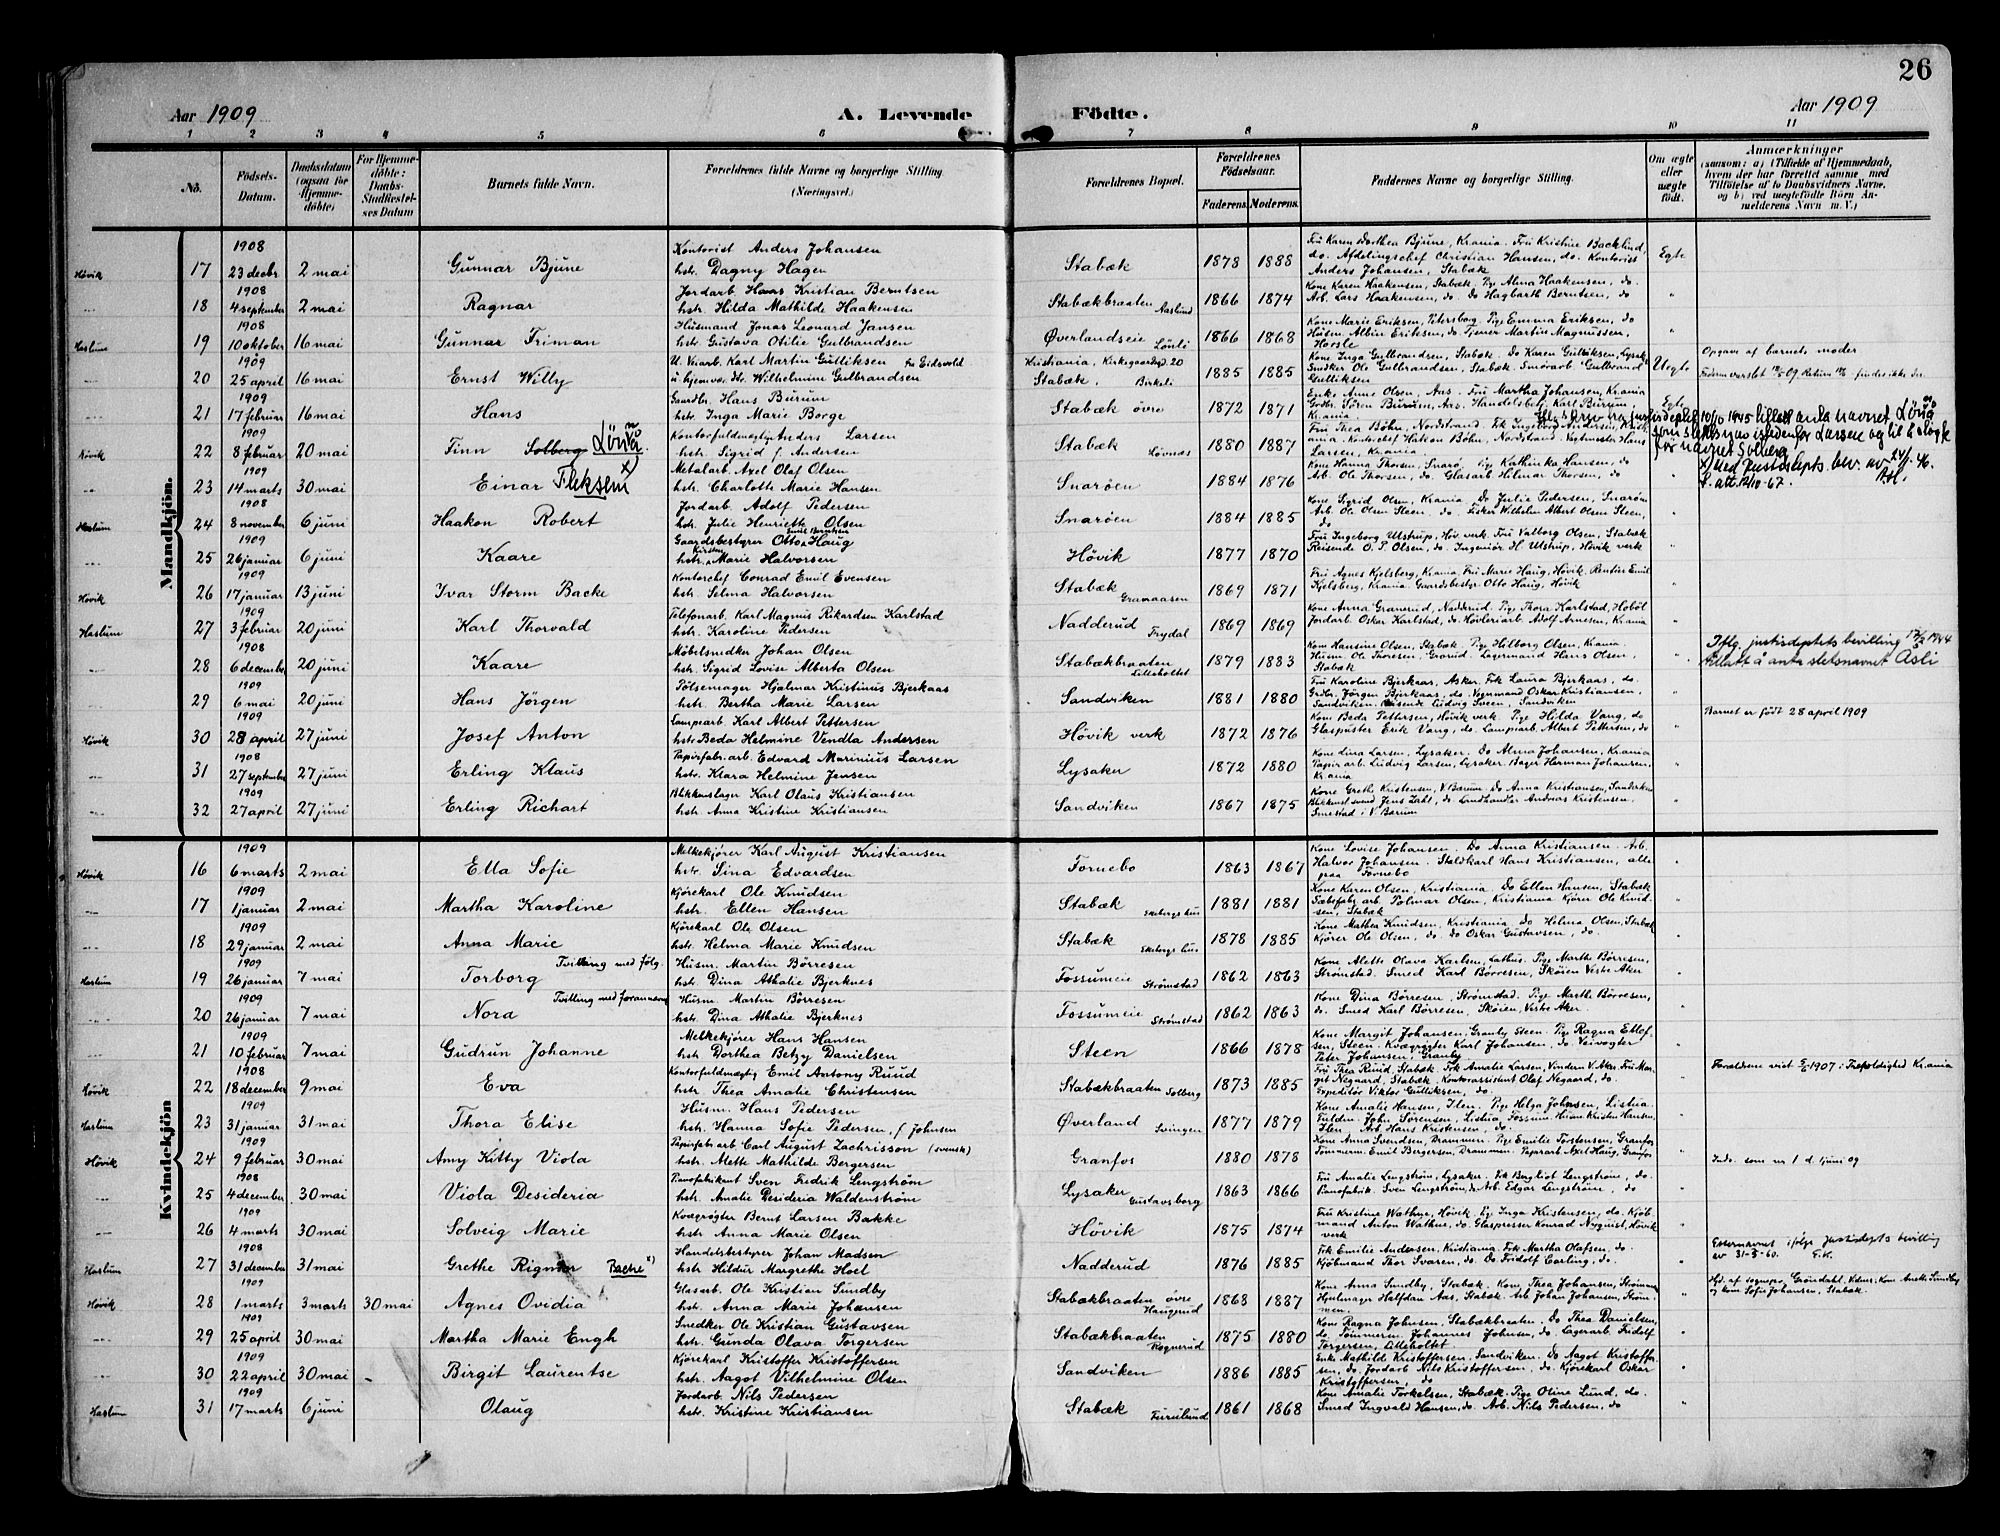 26
Aar 1909
A. Levende Födte.
Aar 1909
1 2 3 4 5 6 7 8 9 10 11
No.
Födsels-Datum.
Daabsdatum (ogsaa for Hjemmedöbte)
For Hjemmedöbte: Daabs-Stadfæstelses Datum
Barnets fulde Navn.
Forældrenes fulde Navne og borgerlige Stilling (Næringsvei.)
Forældrenes Bopæl.
Forældrenes Födselsaar.
Faderens. Moderens.
Faddernes Navne og borgerlige Stilling.
Om ægte eller uægte födt.
Anmærkninger
(saasom: a) i Tilfælde af Hjemmedaab, hvem der har forrettet samme, med Tilföielse af to Daabsvidners Navne, og b) ved uægtefödte Börn Anmelderens Navn m. V.)
Mandkjön.
Høvik 17 1908 23 decbr 2 mai Gunnar Bjune Kontorist Anders Johansen hstr. Dagny Hagen Stabæk 1878 1888 Fru Karen Dorthea Bjune, Krania. Fru Kristine Backlind, do. Afdelingschef Christian Hansen, do. Kontorist Anders Johansen, Stabæk Egte
18 1908 4 september 2 mai Ragnar Jordarb. Hans Kristian Berntsen hstr. Hilda Mathilde Haakensen Stabækbraaten Aaslund 1866 1874 Kone Karen Haakensen, Stabæk. Pige Alma Haakensen, do. Arb. Lars Haakensen, do. do Hagbarth Berntsen, do "
Haslum 19 1908 10 oktober 16 mai Gunnar Friman Husmand Jonas Leonard Jansen hstr. Gustava Otilie Gulbrandsen Øverlandseie Lønli 1866 1868 Kone Marie Eriksen, Petersborg. Pige Emma Eriksen, do Husm. Albin Eriksen, do. Tjener Martin Magnussen, Horsle "
20 1909 25 april 16 mai Ernst Willy U. Veiarb. Karl Martin Gulliksen fra Eidsvold u. hjemvær. dtr. Wilhelmine Gulbrandsen Kristiania, Kirkegaardsgd 20 Stabæk, Birkeli 1885 1885 Kone Inga Gulbrandsen, Stabæk. Do Karen Gulliksen, Lysaker Snedker Ole Gulbrandsen, Stabæk. Smørarb Gulbrand Gulliksen Uegte Opgave af barnets moder
21 1909 17 februar 16 mai Hans Gaardbr. Hans Burum hstr. Inga Marie Borge Stabæk øvre 1872 1871 Enke Anne Olsen, Aas. Fru Martha Johansen, Krania Grdbr. Søren Burum, Aas. Handelsbetj. Karl Burum, Krania Egte
Høvik 22 1909 8 februar 20 mai Finn Solberg Lönå Kontorfuldmægtig Anders Larsen hstr. Sigrid f. Andersen Stabæk Løvnæs 1880 1887 Fru Thea Bøhn, Nordstrand. Frk Ingeborg Andersen, Kristiania. Kontorchef Hakon Bøhn, Nordstrand. Vognmester Hans Larsen, Krania
23 1909 14 marts 30 mai Einar Fleksem x) Metalarb. Axel Olaf Olsen hstr. Charlotte Marie Hansen Snarøen 1884 1876 Kone Hanna Thorsen, Snarø. Pige Kathinka Hansen, do. Arb. Ole Thorsen, do. Glasarb Hilmar Thorsen, do
Haslum 24 1908 8 november 6 juni Haakon Robert Jordarb. Adolf Pedersen hstr. Julie Henriette Olsen Snarøen 1884 1885 Kone Sigrid Olsen, Krania Do Julie Pedersen, Snarøen Arb. Ole Olsen Steen, do. Fisker Wilhelm Albert Olsen Steen, do "
25 1909 26 januar 6 juni Kaare Gaardsbestyrer Otto Emil Berntsen Haug hstr. Kirsten Marie Halvorsen Høvik 1877 1870 Fru Ingeborg Ulstrup, Høv. verk. Fru Valborg Olsen, Stabæk Reisende O. P. Olsen, do. Ingeniør H. Ulstrup, Høvik verk "
Høvik 26 1909 17 januar 13 juni Ivar Storm Backe Kontorchef Conrad Emil Evensen hstr. Selma Halvorsen Stabæk Granaasen 1869 1871 Fru Agnes Kjelsberg, Krania. Fru Marie Haug, Høvik. Rentier Emil Kjelsberg, Krania. Gaardsbestyr Otto Haug, Høvik "
Haslum 27 1909 3 februar 20 juni Karl Thorvald Telefonarb. Karl Magnus Rikardsen Karlstad hstr. Karoline Pedersen Nadderud Frydal 1869 1869 Kone Anna Granerud, Nadderud. Pige Thora Karlstad, Hobøl Jordarb Oskar Karlstad, do. Høvleriarb Adolf Arnesen, Krania "
28 1908 6 december 20 juni Kaare Møbelsnedker Johan Olsen hstr. Sigrid Lovise Alberta Olsen Stabækbraaten Lilleholtet 1879 1883 Kone Hansine Olsen, Stabæk. Pige Hilborg Olsen, Krania Husm. Ole Thoresen, Granrud. Lagermand Hans Olsen, Stabæk " Iflg. justisdeptets bevilling 17/3 1944 tillatt å anta slektsnavnet Åsli
29 1909 6 mai 20 juni Hans Jörgen Pølsemager Hjalmar Kristinus Bjerkaas hstr. Bertha Marie Larsen Sandviken 1881 1880 Fru Karoline Bjerkaas, Asker. Frk Laura Bjerkaas, do. Grdbr. Jörgen Bjerkaas, do. Vognmand Oskar Kristiansen, Sandviken. Reisende Ludvig Sveen, Sandviken "
Høvik 30 1909 28 april 27 juni Josef Anton Lampearb. Karl Albert Pettersen hstr. Beda Helmine Vendla Andersen Høvik verk 1872 1876 Kone Beda Pettersen, Høvik verk. Pige Hilda Vang, do Glaspuster Erik Vang, do. Lampearb. Albert Pettersen, do " Barnet er født 28 april 1909
31 1908 27 september 27 juni Erling Klaus Papirfabr. arb. Edvard Marinius Larsen hstr. Klara Helmine Jensen Lysaker 1872 1880 Kone Lina Larsen, Lysaker. Do Alma Johansen, Krania Papirarb Ludvig Larsen, Lysaker. Bager Herman Johansen, Krania "
32 1909 27 april 27 juni Erling Richart Blikkenslager Karl Olaus Kristiansen hstr. Anna Kristine Kristiansen Sandviken 1867 1875 Kone Grethe Kristensen, V Bærum. Do Anna Kristiansen, Sandviken Landhandler Andreas Kristensen. Smestad i V Bærum "
Iflg. skr. fra justisdeptet 10/10 1945 tillatt anta navnet Lönå som slektsnavn istedenfor Larsen og til å sløyfe før navnet Solberg
x) Med Justisdepts. bev. av 24/1-46.
f. att. 12/10-67.
Kvindekjön
Høvik 16 1909 6 marts 2 mai Ella Sofie Melkekjører Karl August Kristiansen hstr. Sina Edvardsen Fornebo 1863 1867 Kone Lovise Johansen. Do Anna Kristiansen. Arb. Halvor Johansen. Staldkarl Hans Kristiansen, alle paa Fornebo "
17 1909 1 januar 2 mai Martha Karoline Kjørekarl Ole Knudsen hstr. Ellen Hansen Stabæk Ekebergs hus 1881 1881 Kone Karen Olsen, Kristiania Do Ellen Hansen, Stabæk Sæbefabr. arb Polmar Olsen, Kristiania Kjører Ole Knudsen, Stabæk "
18 1909 29 januar 2 mai Anna Marie Kjørekarl Ole Olsen hstr. Helma Marie Knudsen Stabæk Ekebergs hus 1878 1885 Kone Mathea Knudsen, Kristiania, do Helma Olsen, Stabæk Kjører Ole Olsen, do. do Oskar Gustavsen, do. "
Haslum 19 1909 26 januar 7 mai Torborg Tvilling med følg. Husm. Martin Børresen hstr. Dina Athalie Bjerknes Fossumeie Strømstad 1862 1863 Kone Alette Olava Karlsen, Lathus. Pige Marthe Børresen, Strømstad. Smed Karl Børresen, Skøien Vestre Aker "
20 1909 26 januar 7 mai Nora Tvilling med forannævn. Husm. Martin Börresen hstr. Dina Athalie Bjerknes Fossumeie Strømstad 1862 1863 Kone Dina Børresen, Strømstad. Pige Marthe Børresen, do. Smed Karl Børresen, Skøien, Vestre Aker "
21 1909 10 februar 7 mai Gudrun Johanne Melkekjører Hans Hansen hstr. Dorthea Betzy Danielsen Steen 1866 1878 Kone Margit Johansen, Granby Steen. Pige Ragna Ellefsen, Steen. Kvægrøgter Karl Johansen, do Veivogter Peter Johansen, Granby "
Høvik 22 1908 18 december 9 mai Eva Kontorfuldmægtig Emil Antony Ruud hstr. Thea Amalie Christensen Stabækbraaten Solberg 1873 1885 Fru Thea Ruud, Stabæk Frk Amalie Larsen, Vindern V. Aker. Fru Margit Negaard, Stabæk. Kontorassistent Olaf Negaard, do. Expeditør Viktor Gulliksen, do " Forældrene viet 5/5 1907 i Trefoldighed Krania
Haslum 23 1909 31 januar 31 mai Thora Elise Husm. Hans Pedersen hstr. Hanna Sofie Pedersen, f Johnsen Øverland Svingen 1877 1879 Kone Amalie Hansen, Ilen. Pige Helga Johnsen, Listua. Fuldm. John Sørensen, Listua Fossum. Husm Kristen Hansen, Ilen Arb. Hans Kristensen, do "
Høvik 24 1909 9 februar 30 mai Amy Kitty Viola Papirfabr arb Carl August Zachrisson (svensk) hstr. Alette Mathilde Bergersen Granfos 1880 1878 Kone Anna Svendsen, Drammen. Pige Emilie Torstensen, Granfos Tømmerm. Emil Bergersen, Drammen. Papirarb Axel Haug, Granfos " Inds. som nr 1 d. 1 juni 09
25 1908 4 december 30 mai Viola Desideria Pianofabrikant Sven Fredrik Lengström hstr. Amalie Desideria Waldenström Lysaker Gustavsborg 1863 1866 Fru Amalie Lengström, Lysaker. Frk Bergliot Lengström, do Pianofabrik. Sven Lengström, do. Arb. Edgar Lengström, do "
26 1909 4 marts 30 mai Solveig Marie Kvægrøgter Bernt Larsen Bakke hstr. Anna Marie Olsen Høvik 1875 1874 Fru Kristine Wathne, Høvik. Pg. Inga Kristensen, do. Kjøbmand Anton Wathne, do. Glaspresser Konrad Nyquist, Høvik verk "
Haslum 27 1908 31 december 31 mai Grethe Rigmor Bache x) Handelsbestyrer Johan Madsen hstr. Hildur Margrethe Hoel Nadderud 1876 1885 Frk Emilie Andersen, Kristiania. Frk Martha Olafsen, do. Kjöbmand Thor Svaren, do. Do Fridolf Carling, do. " Etternavnet ifølge Justisdepts bevilling av 31-8-60. F.K.
Høvik 28 1909 1 marts 3 marts 30 mai Agnes Ovidia Glasarb. Ole Kristian Sundby hstr. Anna Marie Johansen Stabækbraaten øvre Haugerud 1868 1887 Kone Anna Sundby, Stabæk. Kone Thea Johansen, Strømmen Hjulmager Halfdan Aas, Stabæk. Arb Johan Johansen, Strømmen. " Hjd. af sognepr. Grøndahl. Vidner: Kone Anette Sundby og kone Sofie Johansen, Stabæk.
29 1909 25 april 30 mai Martha Marie Engh Snedker Ole Kristian Gustavsen hstr. Gunda Olava Torgersen Stabækbraaten Ragnerud 1875 1880 Kone Ragna Johnsen, Stabækbraaten. Do Thea Danielsen, do. Tømmerm. Johannes Johnsen, do, Lagerarb Fridolf Torgersen, Lilleholtet "
30 1909 22 april 30 mai Birgit Laurentse Kjørekarl Kristoffer Kristoffersen hstr. Aagot Vilhelmine Olsen Sandviken 1886 1885 Enke Mathild Kristoffersen, Sandviken. Do Aagot Kristoffersen, do. Jordarb Nils Kristoffersen, do. Kjørekarl Oskar Kristoffersen, do "
Haslum 31 1909 17 marts 6 juni Olaug Jordarb. Nils Pedersen hstr. Kristine Kristiansen Stabæk Furulund 1861 1868 Kone Amalie Torkelsen, Stabæk. Pige Oline Lund, do. Smed Ingvald Hansen, do. Arb. Nils Pedersen, do "